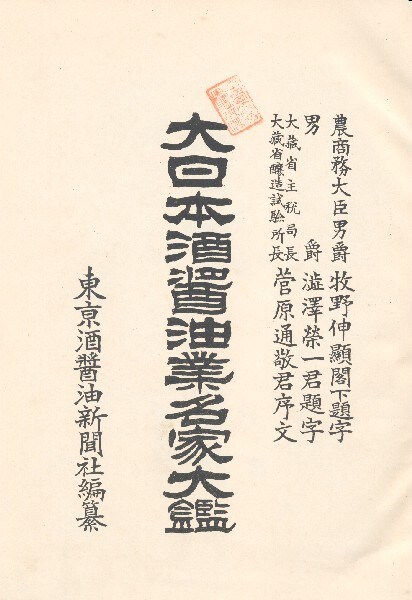 農商務大臣男爵牧野伸顯閣下題字
男爵澁澤榮一君題字
大藏省主税局長
大藏省醸造試驗所長
菅原通敬君序文
大日本酒醤油業名家大鑑
東京酒醤油新聞社編纂